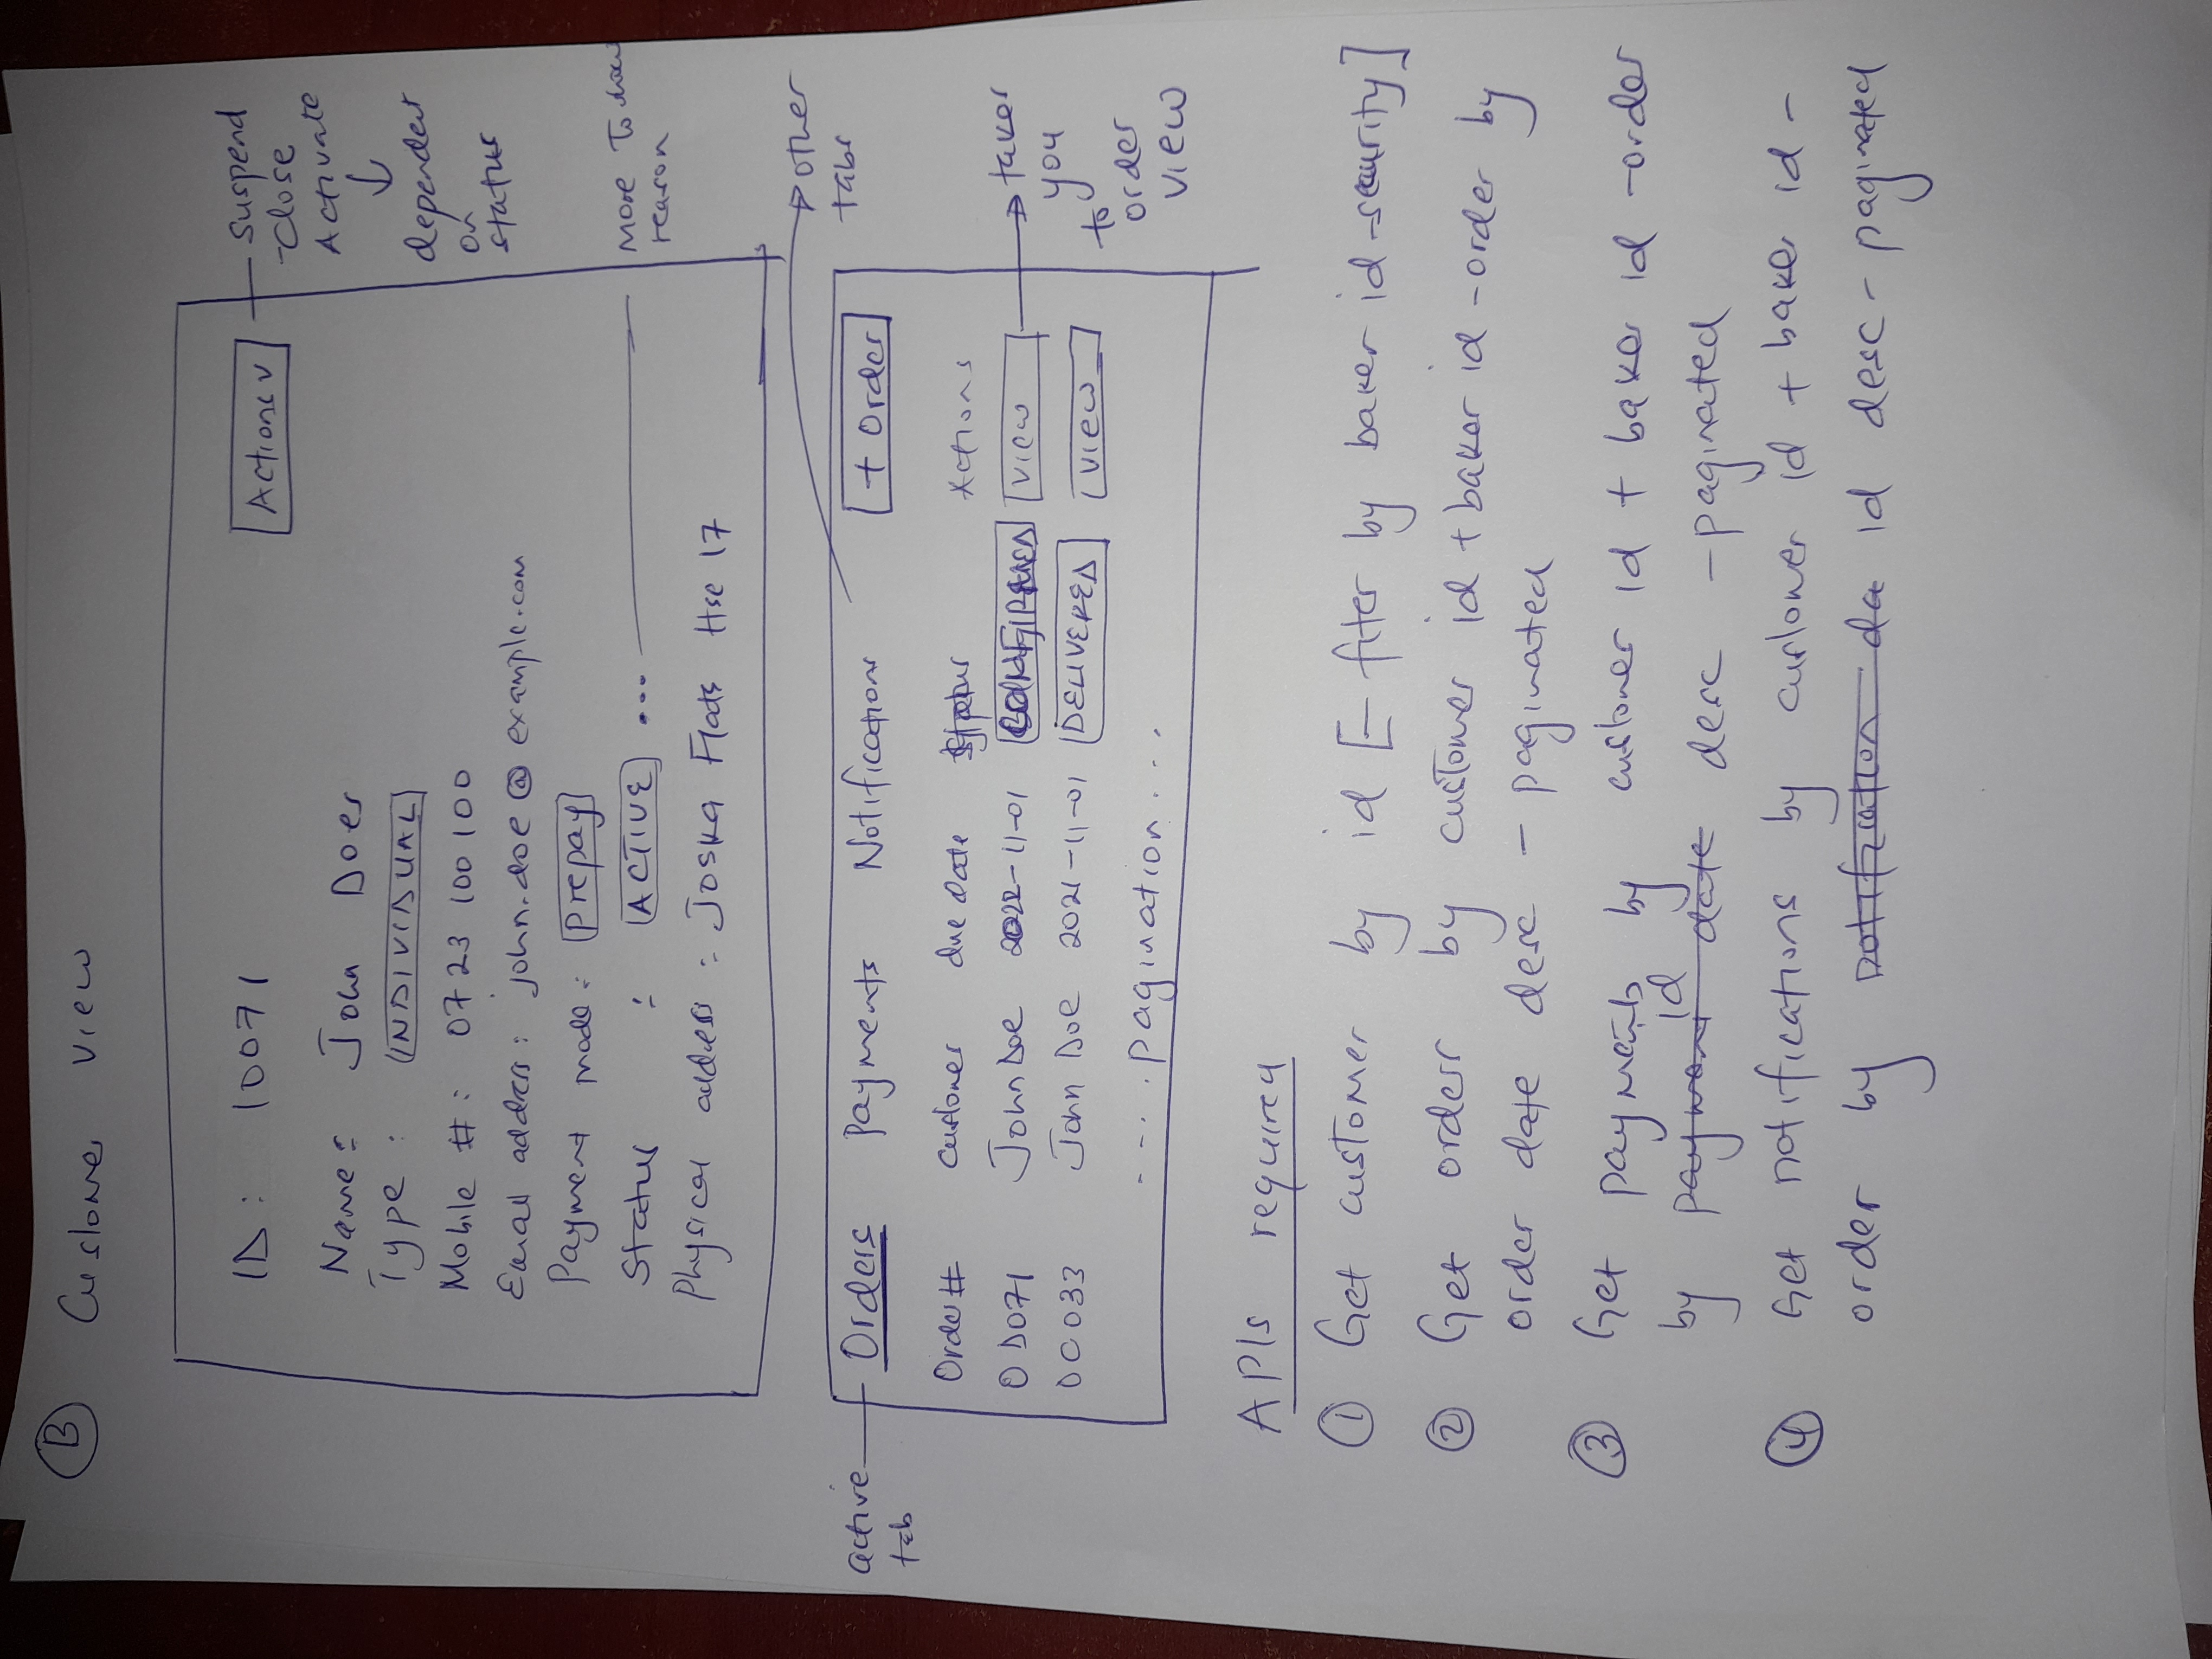 B Customer view
ID: 10071 Actions v
suspend
-close
Activate
dependent
on
status
Name: John Does
Type: INDIVIDUAL
Mobile #: 0723 100 100
Email address: john.doe@example.com
Payment mode: prepay
Status : ACTIVE ...
more to show
reason
Physical address: Joska Flats Hse 17
other
tabs
active
tab
Orders Payments Notifications + Order
Order# customer due date Status Actions
OD071 John Doe 2022-11-01 CONFIRMED view
OC033 John Doe 2021-11-01 DELIVERED view
takes
you
to
order
view
---. pagination...
APIs required
1 Get customer by id [- filter by baker id-security]
2 Get orders by customer id + baker id - order by
order date desc - paginated
3 Get payments by customer id + baker id - order
by payment date id desc - paginated
4 Get notifications by customer id + baker id -
order by notification da id desc - paginated